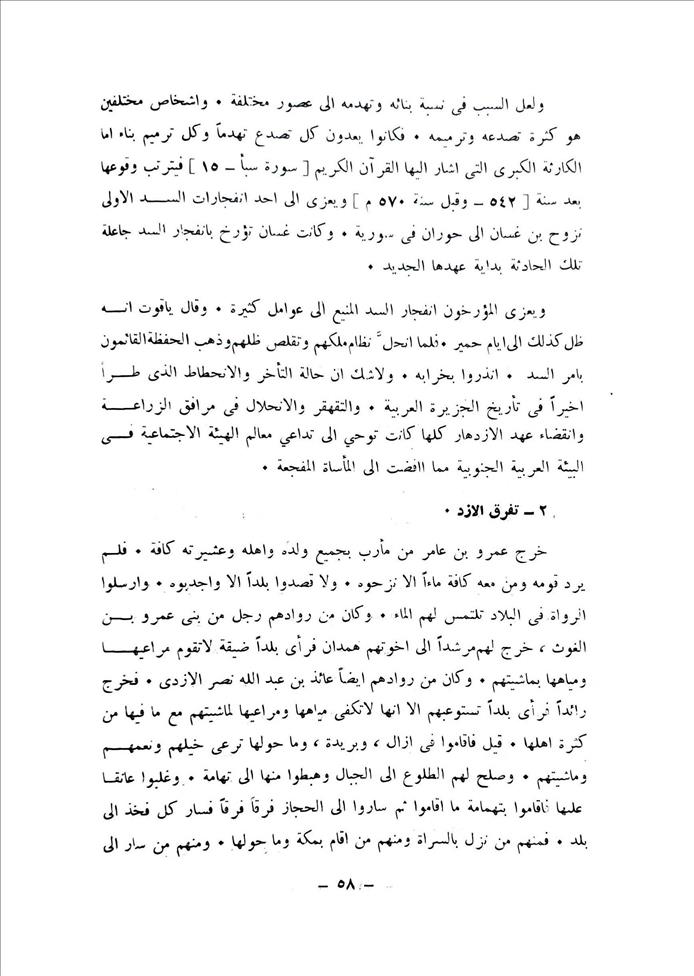 ولعل السبب فى نسبة بنائه وتهدمه الى عصور مختلفة ٠ واشخاص مختلفين
هو كثرة تصدعه وترميمه ٠ فكانوا يعدون كل تصدع تهدماً وكل ترميم بناء اما
الكارثة الكبرى التى اشار اليها القرآن الكريم [ سورة سبأ ــ ١٥ ] فيترتب وقوعها
بعد سنة [ ٥٤٢ ــ وقبل سنة ٥٧٠ م ] ويعزى الى احد انفجارات الســد الاولى
نزوح بن غسان الى حوران فى سورية ٠ وكانت غسان تؤرخ بانفجار السد جاعلة
تلك الحادثة بداية عهدها الجديد ٠
ويعزى المؤرخون انفجار السد المنيع الى عوامل كثيرة ٠ وقال ياقوت انــه
ظل كذلك الى ايام حمير ٠ فلما انحلّ نظام ملكهم وتقلص ظلهم وذهب الحفظة القائمون
بامر السد ٠ انذروا بخرابه ٠ ولاشك ان حالة التأخر والانحطاط الذى طــرأ
اخيراً فى تأريخ الجزيرة العربية ٠ والتقهقر والانحلال فى مرافق الزراعــة
وانقضاء عهد الازدهار كلها كانت توحي الى تداعي معالم الهيئة الاجتماعية فــى
البيئة العربية الجنوبية مما افضت الى المأساة المفجعة ٠
٢ ــ تفرق الازد ٠
خرج عمرو بن عامر من مأرب بجميع ولده واهله وعشيرته كافة ٠ فلــم
يرد قومه ومن معه كافة ماءاً الا نزحوه ٠ ولا قصدوا بلداً الا واجدبوه ٠ وارسلوا
الرواة فى البلاد تلتمس لهم الماء ٠ وكان من روادهم رجل من بنى عمرو بــن
الغوث ، خرج لهم مرشداً الى اخوتهم همدان فرأى بلداً ضيقة لاتقوم مراعيهــا
ومياهها بماشيتهم ٠ وكان من روادهم ايضاً عائذ بن عبد الله نصر الازدى ٠ فخرج
رائداً فرأى بلداً تستوعبهم الا انها لاتكفى مياهها ومراعيها لماشيتهم مع ما فيها من
كثرة اهلها ٠ قيل فاقاموا فى ازال ، وبريدة ، وما حولها ترعى خيلهم ونعمهــم
وماشيتهم ٠ وصلح لهم الطلوع الى الجبال وهبطوا منها الى تهامة ٠ وغلبوا عاتقا
عليها فاقاموا بتهمامة ما اقاموا ثم ساروا الى الحجاز فرقاً فرقاً فسار كل فخذ الى
بلد ٠ فمنهم من نزل بالسراة ومنهم من اقام بمكة وما حولها ٠ ومنهم من سار الى
ــ ٥٨ ــ